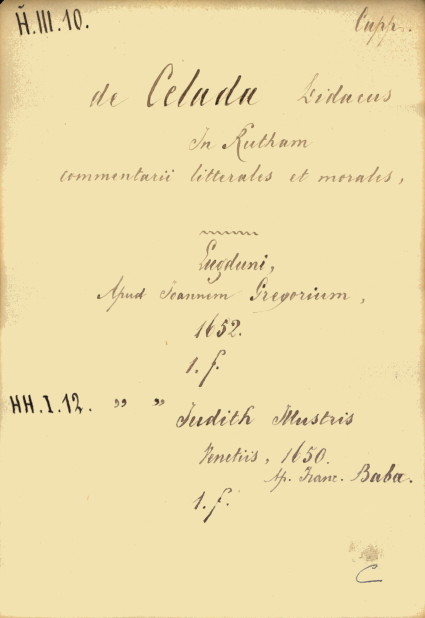 Ȟ.III.10. Capp.
de Celada Didacus
In Rutham
commentarii litterales et morales,
Lugduni,
Apud Joannem Gregorium,
1652.
1. f.
HH.I.12. " " Judith Illustris
Venetiis, 1650.
Ap. Franc. Baba.
1. f.
C